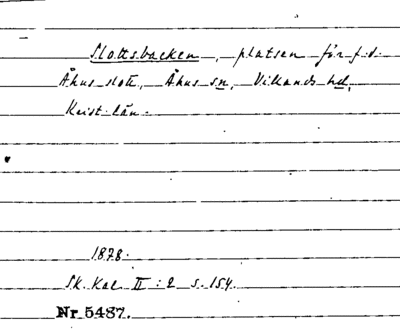 Slottsbacken, platsen för f.d.
Åhus slott, Åhus sn, Villands hd,
Krist. län.
1878.
Sk. Kal II : 2 s. 154.
Nr 5487.